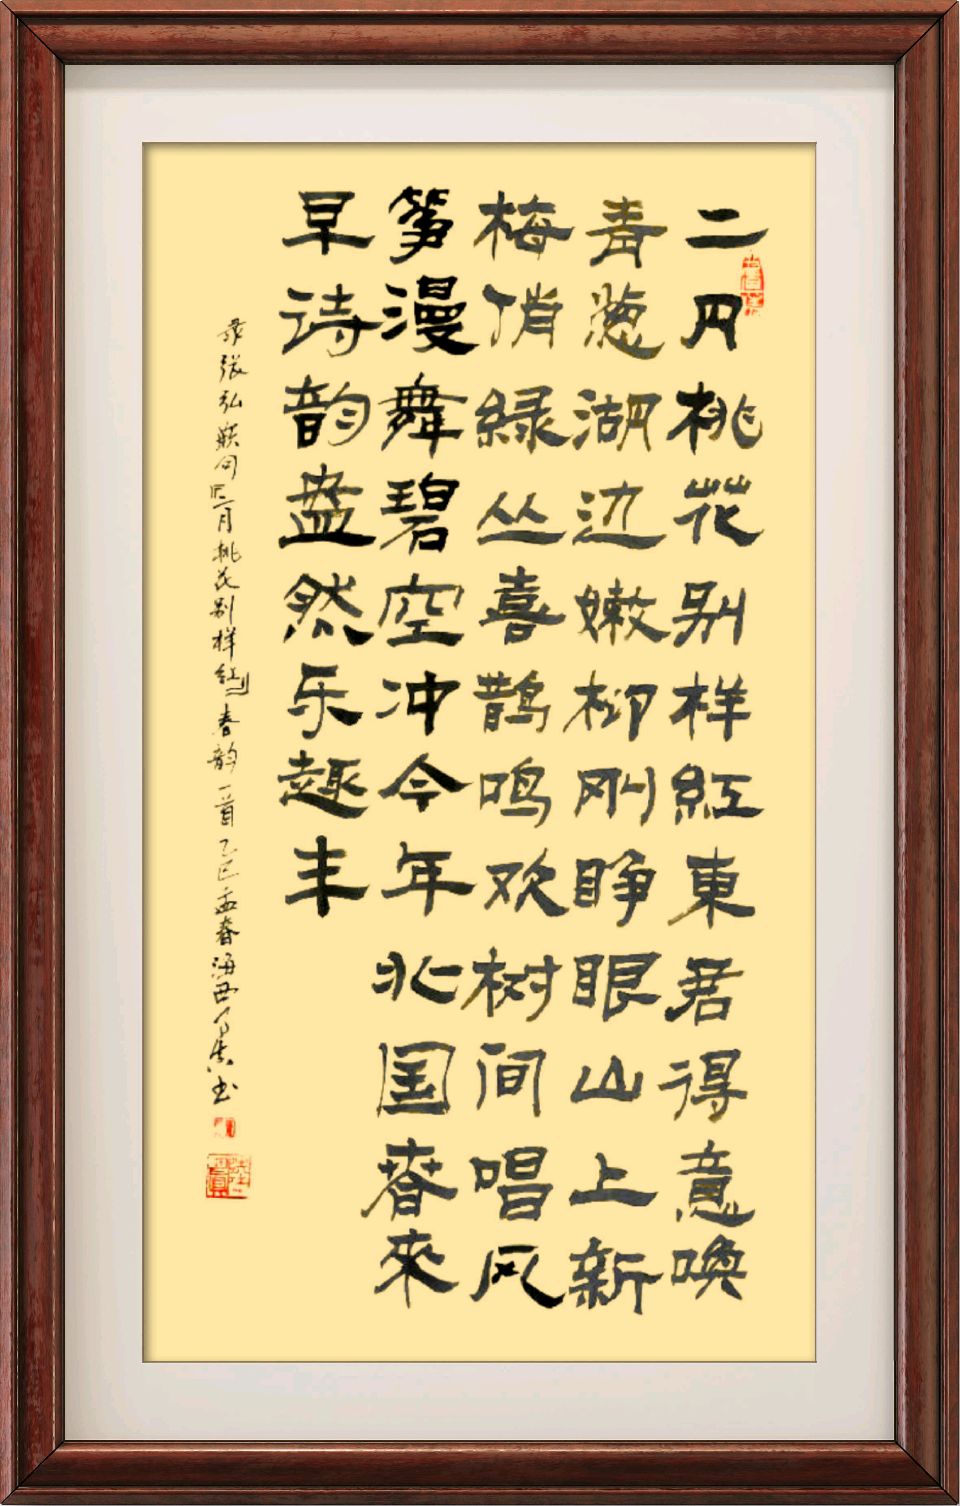 二月桃花别样红東君得意喚
青葱湖边嫩柳刚睁眼山上新
梅俏緑丛喜鹊鸣欢树间唱风
筝漫舞碧空冲今年北国春來
早诗韵盎然乐趣丰
录张弘 句 二月桃花别样红 春韵一首乙巳孟春海西 书